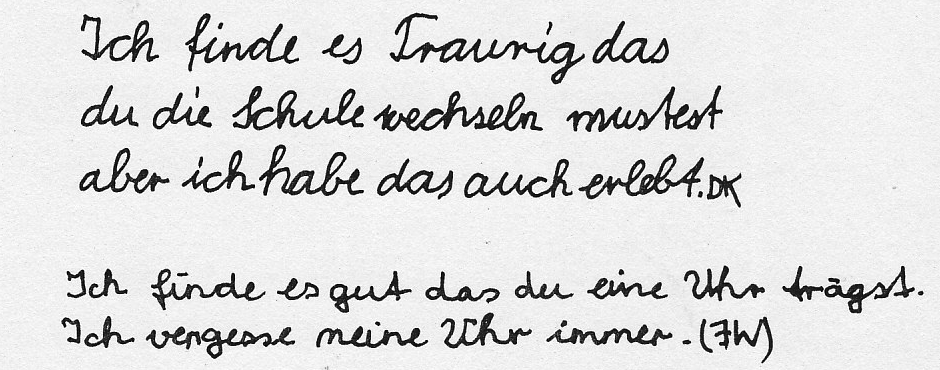 Ich finde es Traurig das
du die Schule wechseln mustest
aber ich habe das auch erlebt. DK
Ich finde es gut das du eine Uhr trägst.
Ich vergesse meine Uhr immer. (JW)